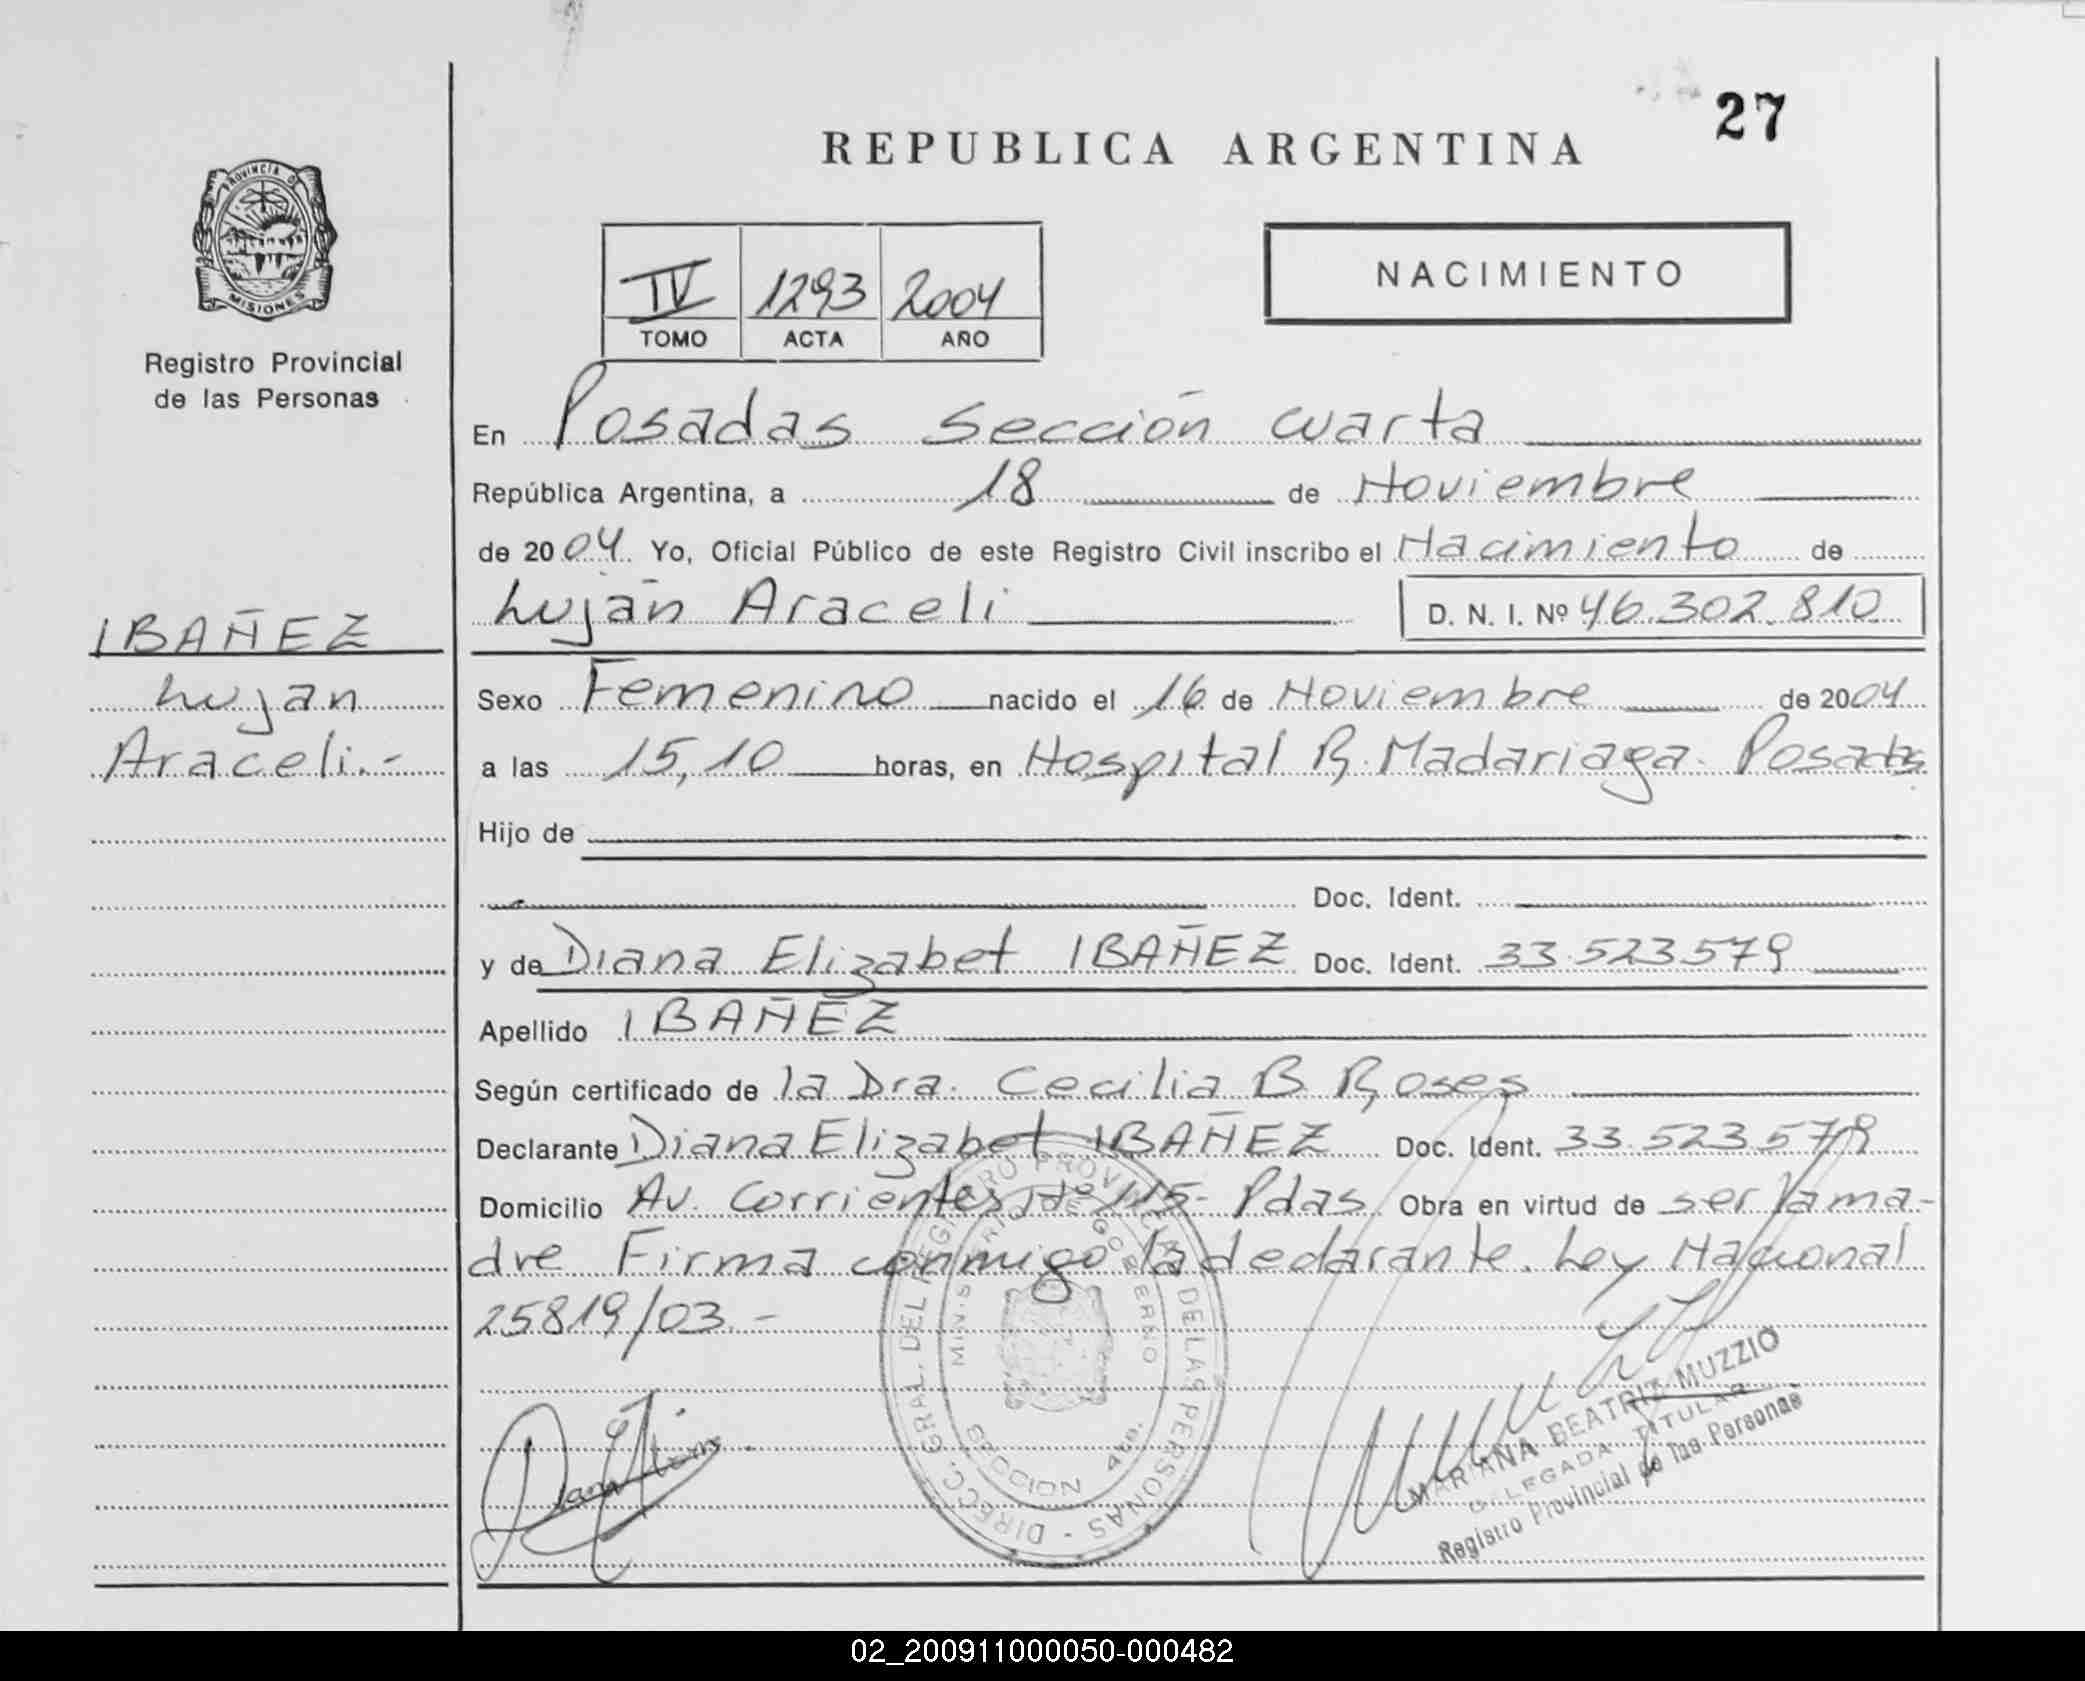 27
REPUBLICA ARGENTINA
PROVINCIA DE
MISIONES
Registro Provincial
de las Personas
NACIMIENTO
IV 1293 2004
TOMO ACTA AÑO
En Posadas Sección Cuarta
República Argentina, a 18 de Noviembre
de 2004. Yo, Oficial Público de este Registro Civil inscribo el Nacimiento de
Luján Araceli D. N. I. Nº 46.302.810
IBAÑEZ
Lujan
Araceli.-
Sexo Femenino nacido el 16 de Noviembre de 2004
a las 15,10 horas, en Hospital R. Madariaga. Posadas
Hijo de
Doc. Ident.
y de Diana Elizabet IBAÑEZ Doc. Ident. 33.523.579
Apellido IBAÑEZ
Según certificado de la Dra. Cecilia B. Roses
Declarante Diana Elizabet IBAÑEZ Doc. Ident. 33.523.579
Domicilio Av. Corrientes Nº 115- Pdas. Obra en virtud de ser la ma-
dre Firma conmigo la declarante. Ley Nacional
25819/03.-
DIRECC. GRAL. DEL REGISTRO PROVINCIAL DE LAS PERSONAS -
MINISTERIO DE GOBIERNO
SECCION 4ta.
MARIANA BEATRIZ MUZZIO
DELEGADA TITULAR
Registro Provincial de las Personas
02_200911000050-000482